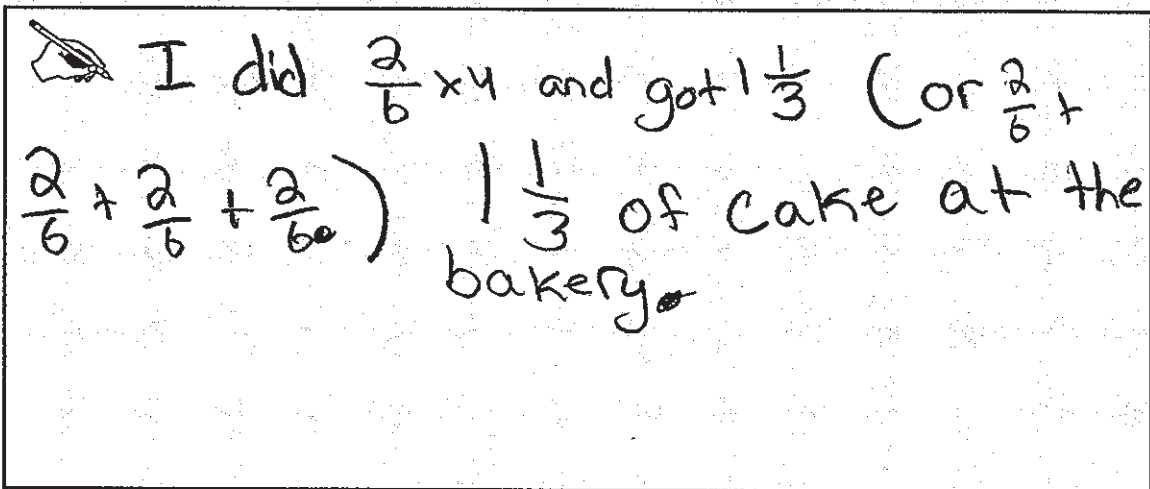 I did 2/6 x4 and got 1 1/3 (or 2/6 +
2/6 + 2/6 + 2/6.) 1 1/3 of cake at the
bakery.